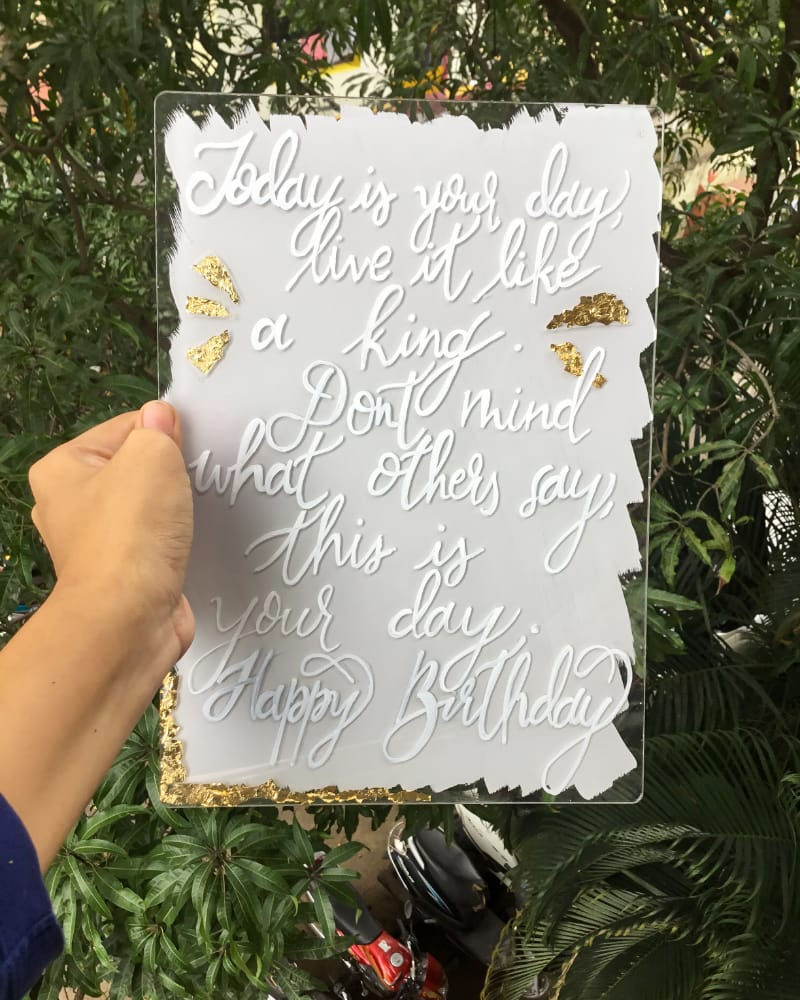 Today is your day,
live it like
a king.
Dont mind
what others say,
this is
your day.
Happy Birthday